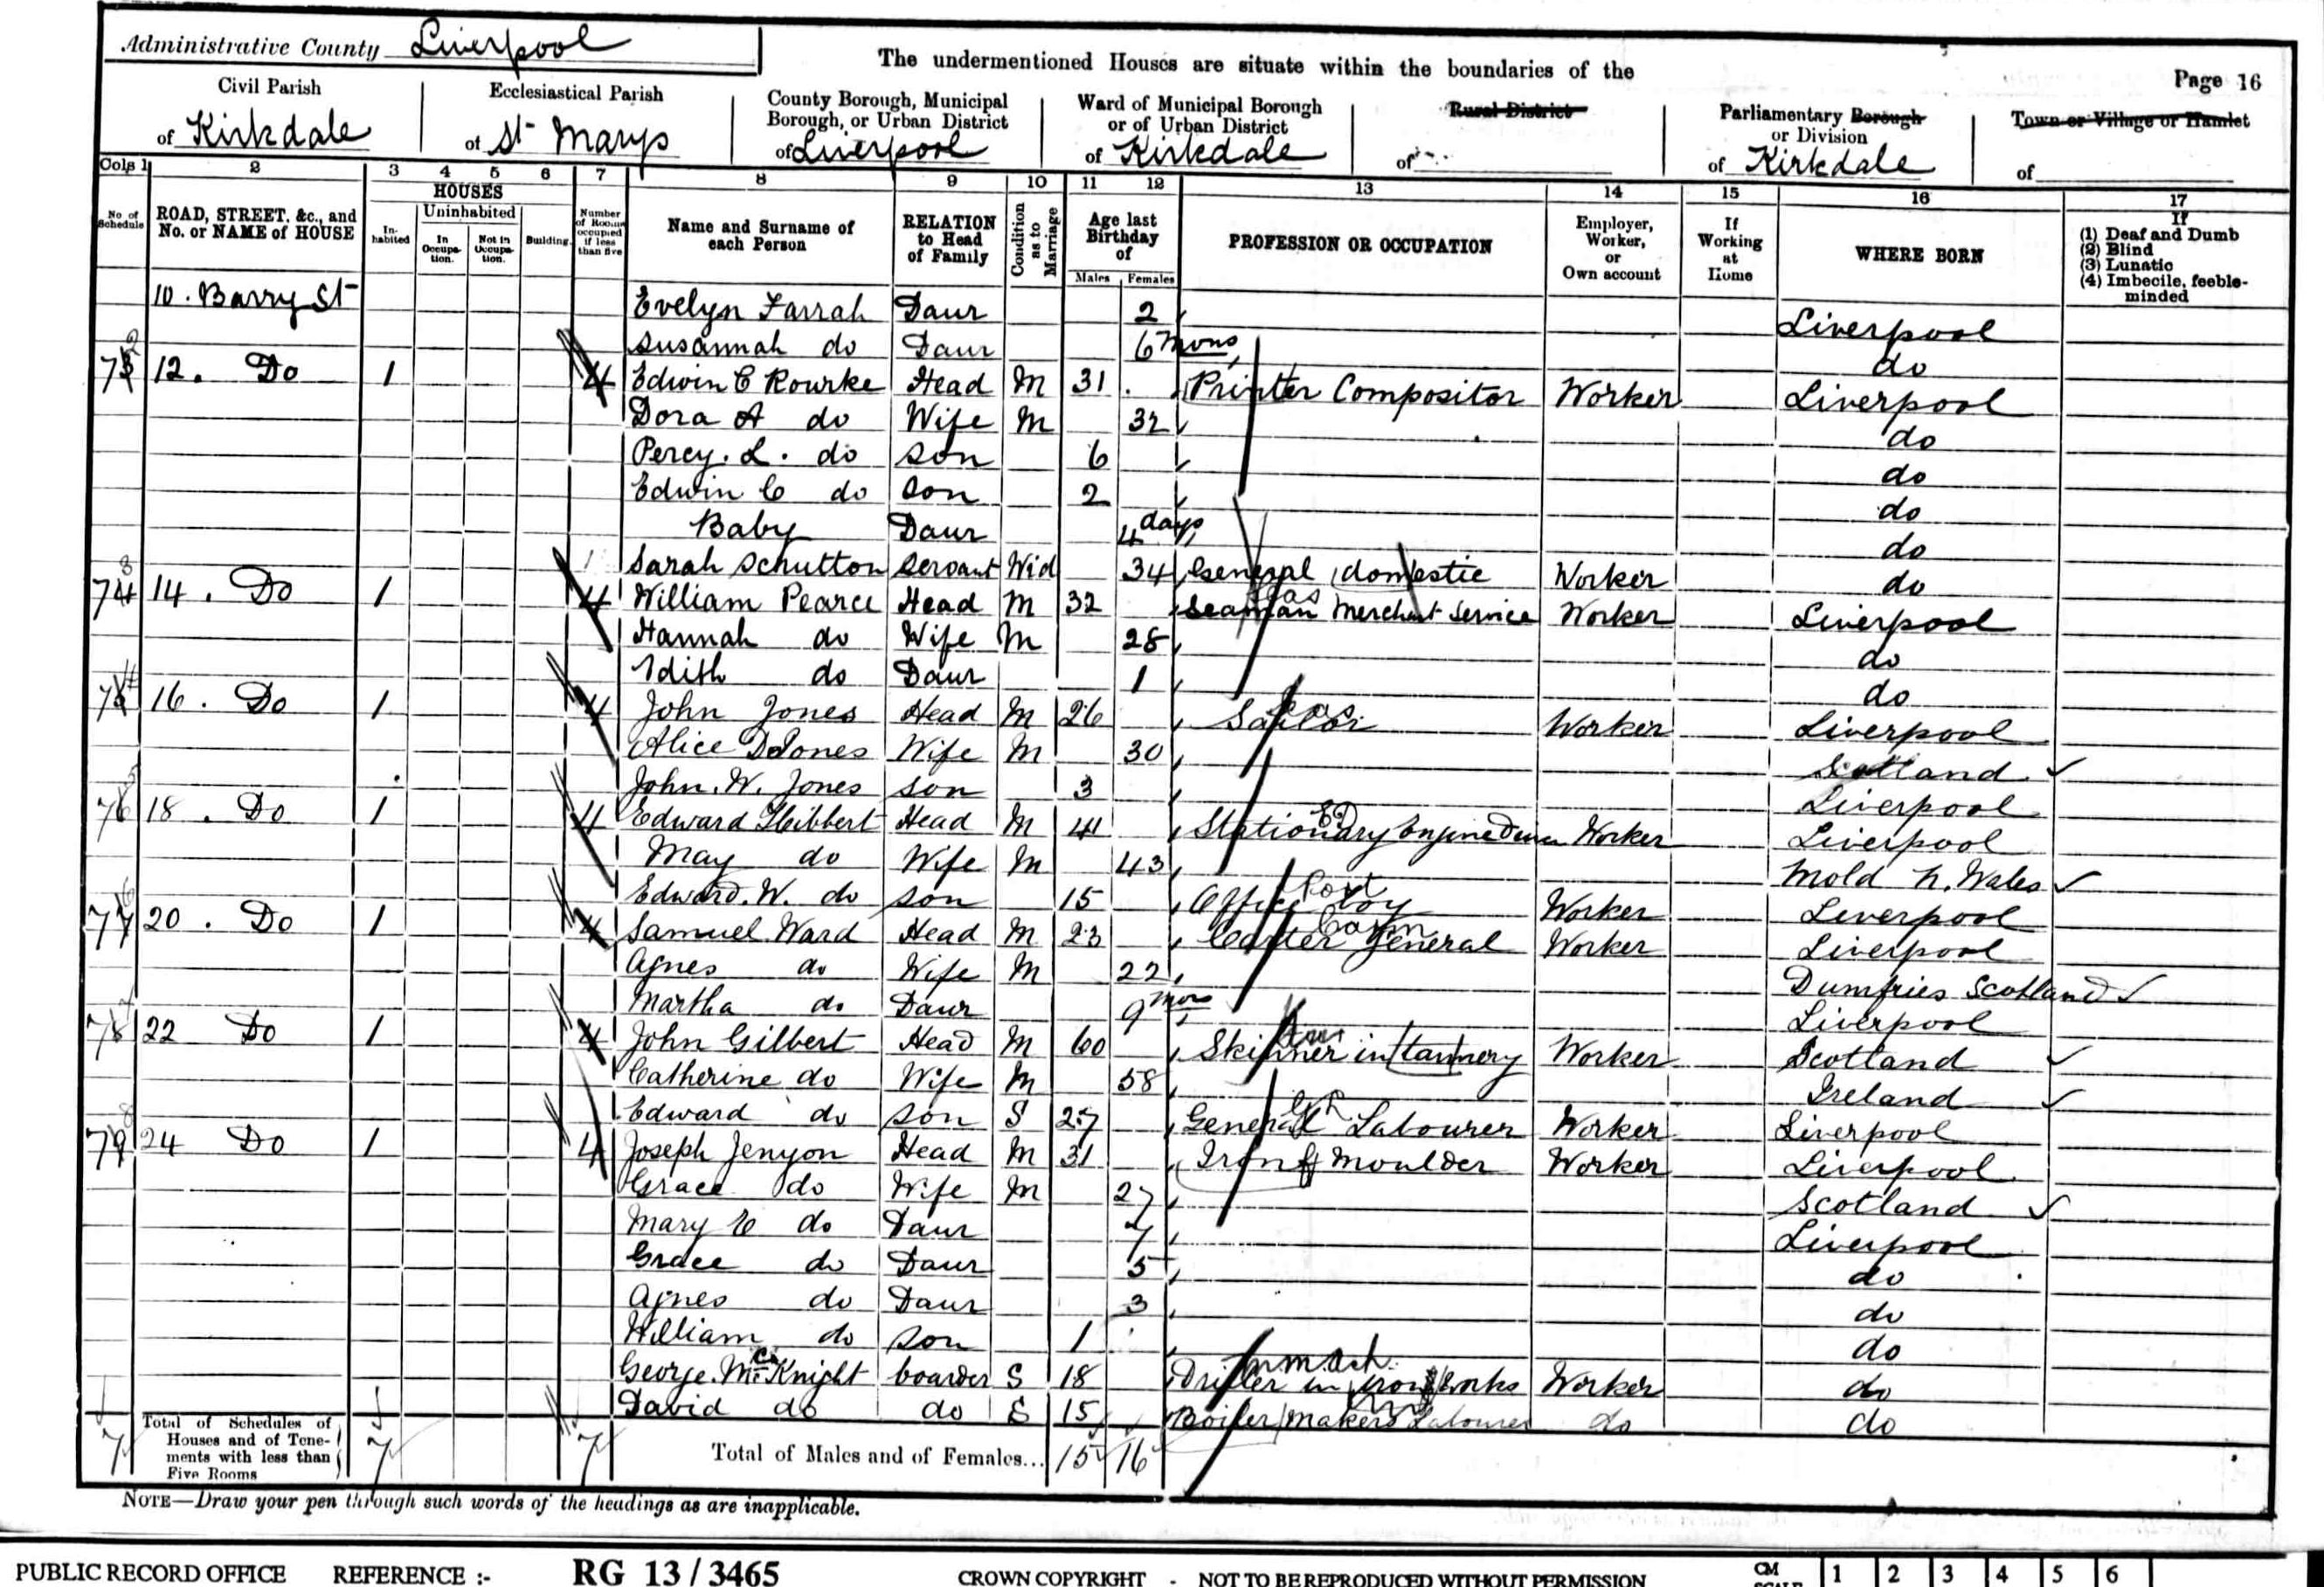 Administrative County Liverpool
The undermentioned Houses are situate within the boundaries of the
Page 16
Civil Parish of Kirkdale
Ecclesiastical Parish of St Marys
County Borough, Municipal Borough, or Urban District of Liverpool
Ward of Municipal Borough or of Urban District of Kirkdale
Rural District of
Parliamentary Borough or Division of Kirkdale
Town or Village or Hamlet of
Cols 1 2 3 4 5 6 7 8 9 10 11 12 13 14 15 16 17
No of Schedule
ROAD, STREET, &c., and No. or NAME of HOUSE
HOUSES
Inhabited
Uninhabited
In Occupation.
Not in Occupation.
Building.
Number of Rooms occupied if less than five
Name and Surname of each Person
RELATION to Head of Family
Condition as to Marriage
Age last Birthday of
Males Females
PROFESSION OR OCCUPATION
Employer, Worker, or Own account
If Working at Home
WHERE BORN
If (1) Deaf and Dumb (2) Blind (3) Lunatic (4) Imbecile, feeble-minded
10. Barry St Evelyn Farrah Daur 2 Liverpool
Susannah do Daur 6 mons do
12. Do 1 4 Edwin C Rourke Head M 31 Printer Compositor Worker Liverpool
Dora A do Wife M 32 do
Percy. L. do Son 6 do
Edwin C do Son 2 do
Baby Daur 4 days do
Sarah Schutton Servant Wid 34 General domestic Worker do
74 14. Do 1 4 William Pearce Head M 32 Seaman Merchant Service Worker Liverpool
Hannah do Wife M 28 do
Edith do Daur 1 do
16. Do 1 4 John Jones Head M 26 Sailor Worker Liverpool
Alice Jones Wife M 30 Scotland
John. W. Jones Son 3 Liverpool
76 18. Do 1 4 Edward Hibbert Head M 41 Stationary Engine Driver Worker Liverpool
May do Wife M 43 Mold N. Wales
Edward. W. do Son 15 Office Boy Worker Liverpool
77 20. Do 1 4 Samuel Ward Head M 23 Carter General Worker Liverpool
Agnes do Wife M 22 Dumfries Scotland
Martha do Daur 9 mos Liverpool
78 22 Do 1 4 John Gilbert Head M 60 Skinner in tannery Worker Scotland
Catherine do Wife M 58 Ireland
Edward do Son S 27 General Labourer Worker Liverpool
79 24 Do 1 4 Joseph Jenyon Head M 31 Iron Moulder Worker Liverpool
Grace do Wife M 27 Scotland
Mary E do Daur 7 Liverpool
Grace do Daur 5 do
Agnes do Daur 3 do
William do Son 1 do
George. McKnight boarder S 18 Driller in Iron Works Worker do
David do do S 15 Boiler Makers Labourer do do
7 Total of Schedules of Houses and of Tenements with less than Five Rooms 7 7 Total of Males and of Females... 15 16
NOTE—Draw your pen through such words of the headings as are inapplicable.
PUBLIC RECORD OFFICE REFERENCE :- RG 13 / 3465 CROWN COPYRIGHT - NOT TO BE REPRODUCED WITHOUT PERMISSION CM 1 2 3 4 5 6